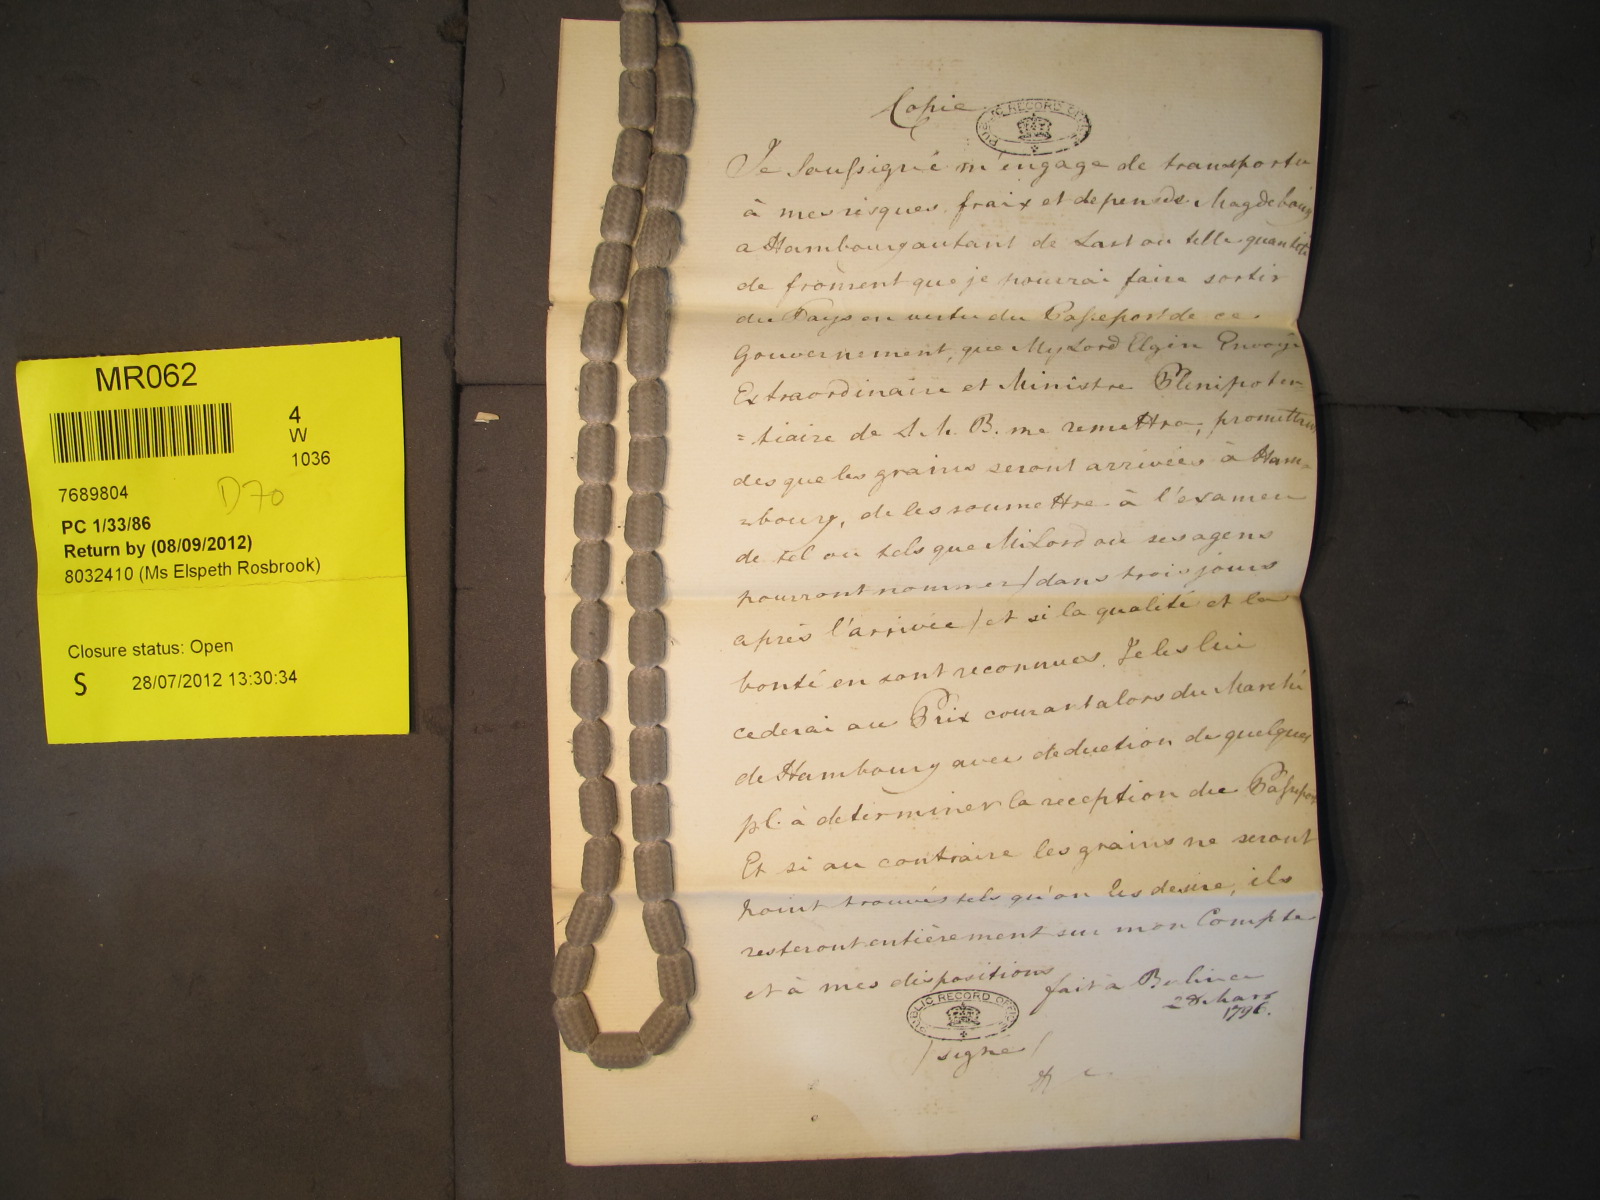 MR062
4
W
1036
7689804
D70
PC 1/33/86
Return by (08/09/2012)
8032410 (Ms Elspeth Rosbrook)
Closure status: Open
S 28/07/2012 13:30:34
Copie
PUBLIC RECORD OFFICE
Je Soussigné m'engage de transporter
à mes risques, fraix et depens de Magdebourg
a Hambourg autant de Last ou telle quantité
de froment que je pourrai faire sortir
du Pays en vertu du Passeport de ce
Gouvernement, que My Lord Elgin Envoyé
Extraordinaire et Ministre Plenipoten
=tiaire de S. M. B. me remettra, promettant
des que les grains seront arrivées à Ham=
=bourg, de les soumettre à l'examen
de tel ou tels que MiLord ou ses agens
pourront nommer / dans trois jours
après l'arrivée / et si la qualité et la
bonté en sont reconnues, Je les lui
cederai au Prix courant alors du Marché
de Hambourg avec deduction de quelques
pC. à determiner la reception du Passeport
Et si au contraire les grains ne seront
point trouvés tels qu'on les desire, ils
resteront entièrement sur mon Compte
et à mes dispositions fait à Berlin ce
28 Mars
1796.
PUBLIC RECORD OFFICE
/ signé /